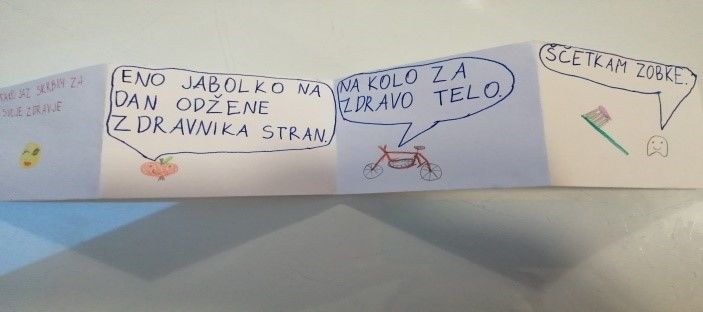 KAKO JAZ SKRBIM ZA
SVOJE ZDRAVJE
ENO JABOLKO NA
DAN ODŽENE
ZDRAVNIKA STRAN.
NA KOLO ZA
ZDRAVO TELO.
ŠČETKAM ZOBKE.